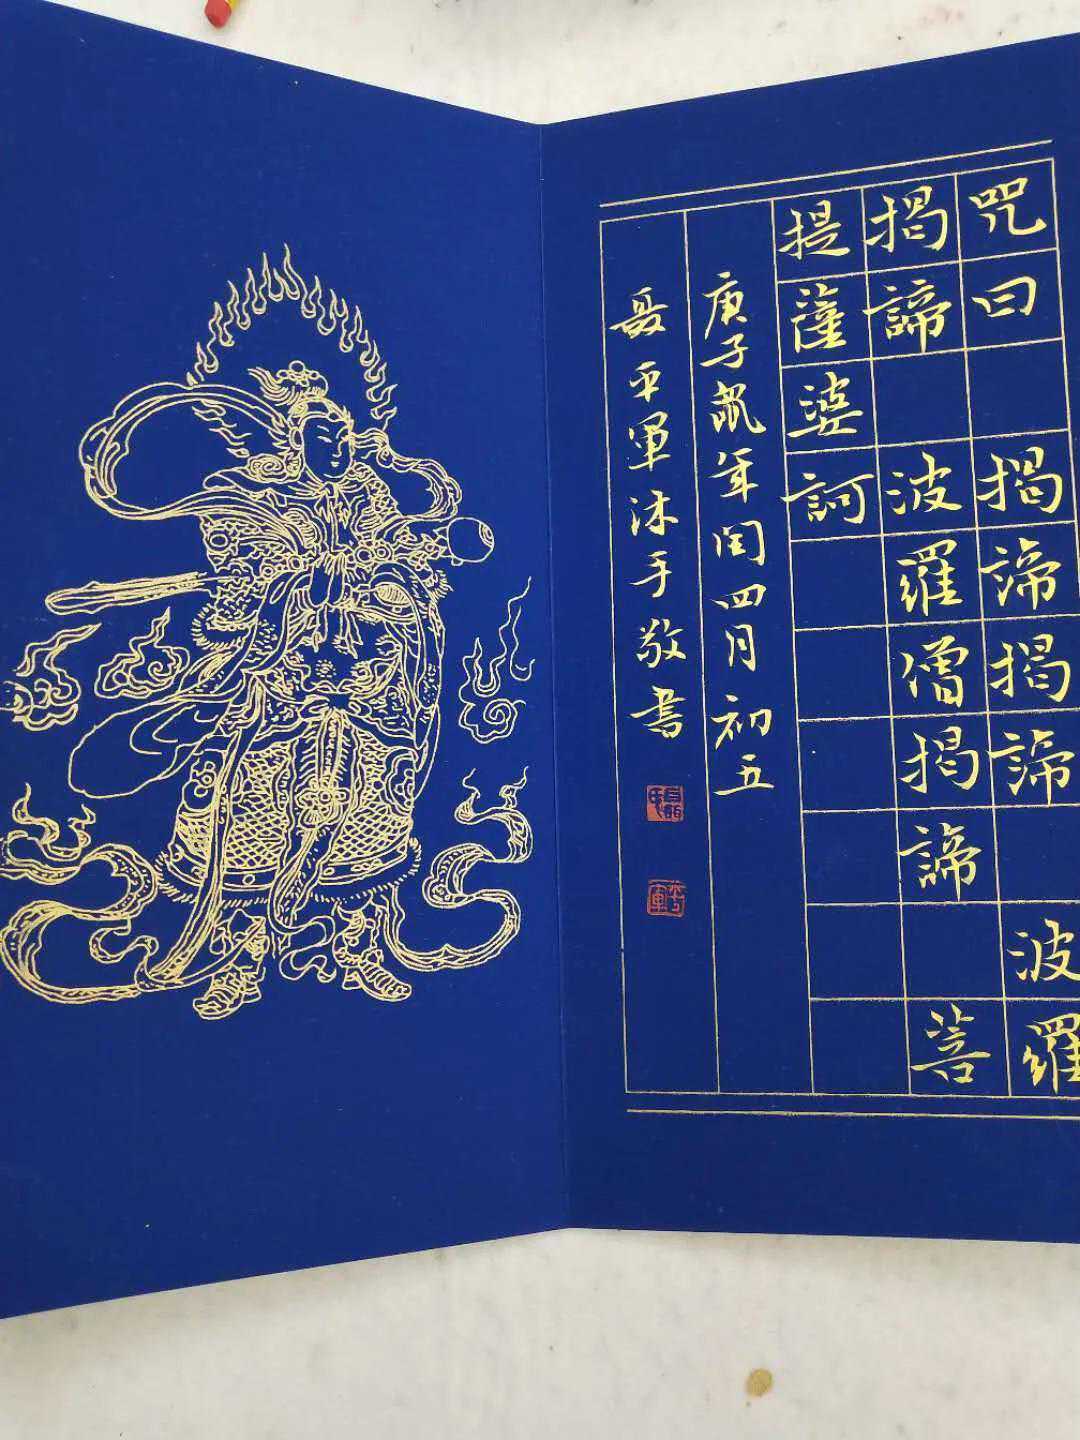 咒曰 揭諦揭諦 波羅
揭諦 波羅僧揭諦 菩
提薩婆訶
庚子鼠年闰四月初五
聂平軍沐手敬書